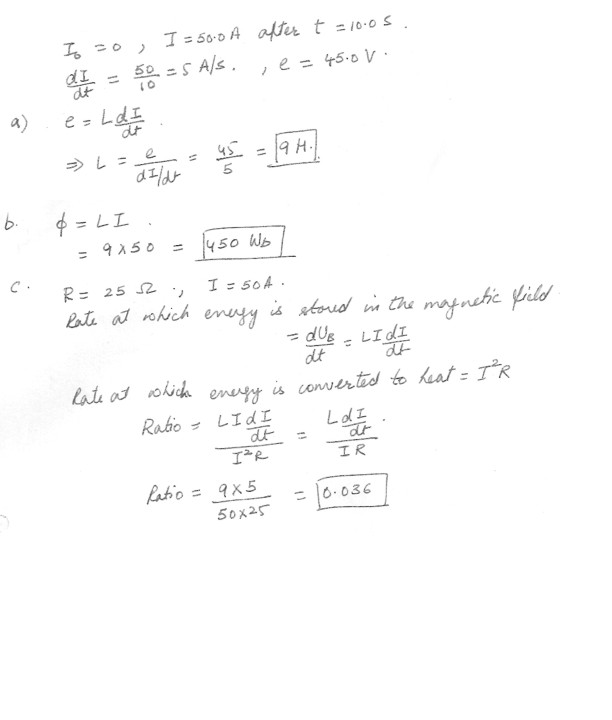 I₀ = 0 , I = 50.0 A after t = 10.0 s .
dI/dt = 50/10 = 5 A/s . , e = 45.0 V .
a) e = L dI/dt .
⇒ L = e/(dI/dt) = 45/5 = 9 H.
b. ϕ = LI .
= 9 x 50 = 450 Wb
C . R = 25 Ω ; I = 50A .
Rate at which energy is stored in the magnetic field
= dU_B/dt = LI dI/dt
Rate at which energy is converted to heat = I²R
Ratio = (LI dI/dt)/(I²R) = (L dI/dt)/(IR) .
Ratio = (9 x 5)/(50 x 25) = 0.036